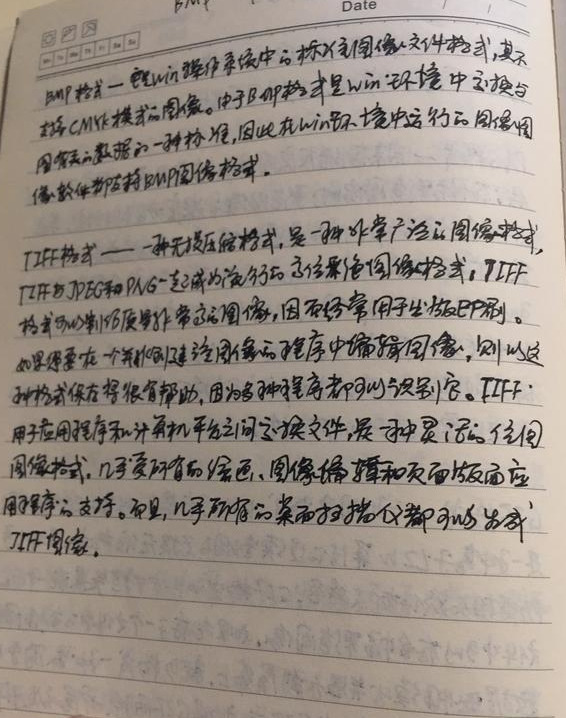 BMP
Date
Mo Tu We Th Fr Sa Su
BMP格式—是Win操作系统中的标准图像文件格式,其不
支持CMYK模式的图像。由于BMP格式是Win环境中交换与
图有关的数据的一种标准,因此在Win环境中运行的图像图
像软件都支持BMP图像格式。
TIFF格式——一种无损压缩格式,是一种非常广泛的图像格式,
TIFF与JPEG和PNG一起成为流行的高位彩色图像格式。TIFF
格式可以制作质量非常高的图像,因而经常用于出版印刷。
如果想要在一个并非创建该图像的程序中编辑图像,则以这
种格式保存将很有帮助,因为多种程序都可以识别它。TIFF
用于应用程序和计算机平台之间交换文件,是一种灵活的位图
图像格式,几乎受所有的绘画、图像编辑和页面版面应
用程序的支持。而且,几乎所有的桌面扫描仪都可以生成
TIFF图像。